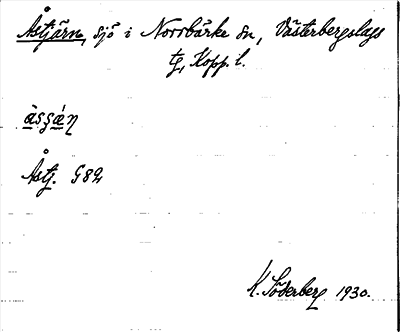 Åstjärn, sjö i Norrbärke sn, Västerbergslags
tg, Kopp. l.
àsʂáɳ
Åstj. G82
K. Söderberg 1930.